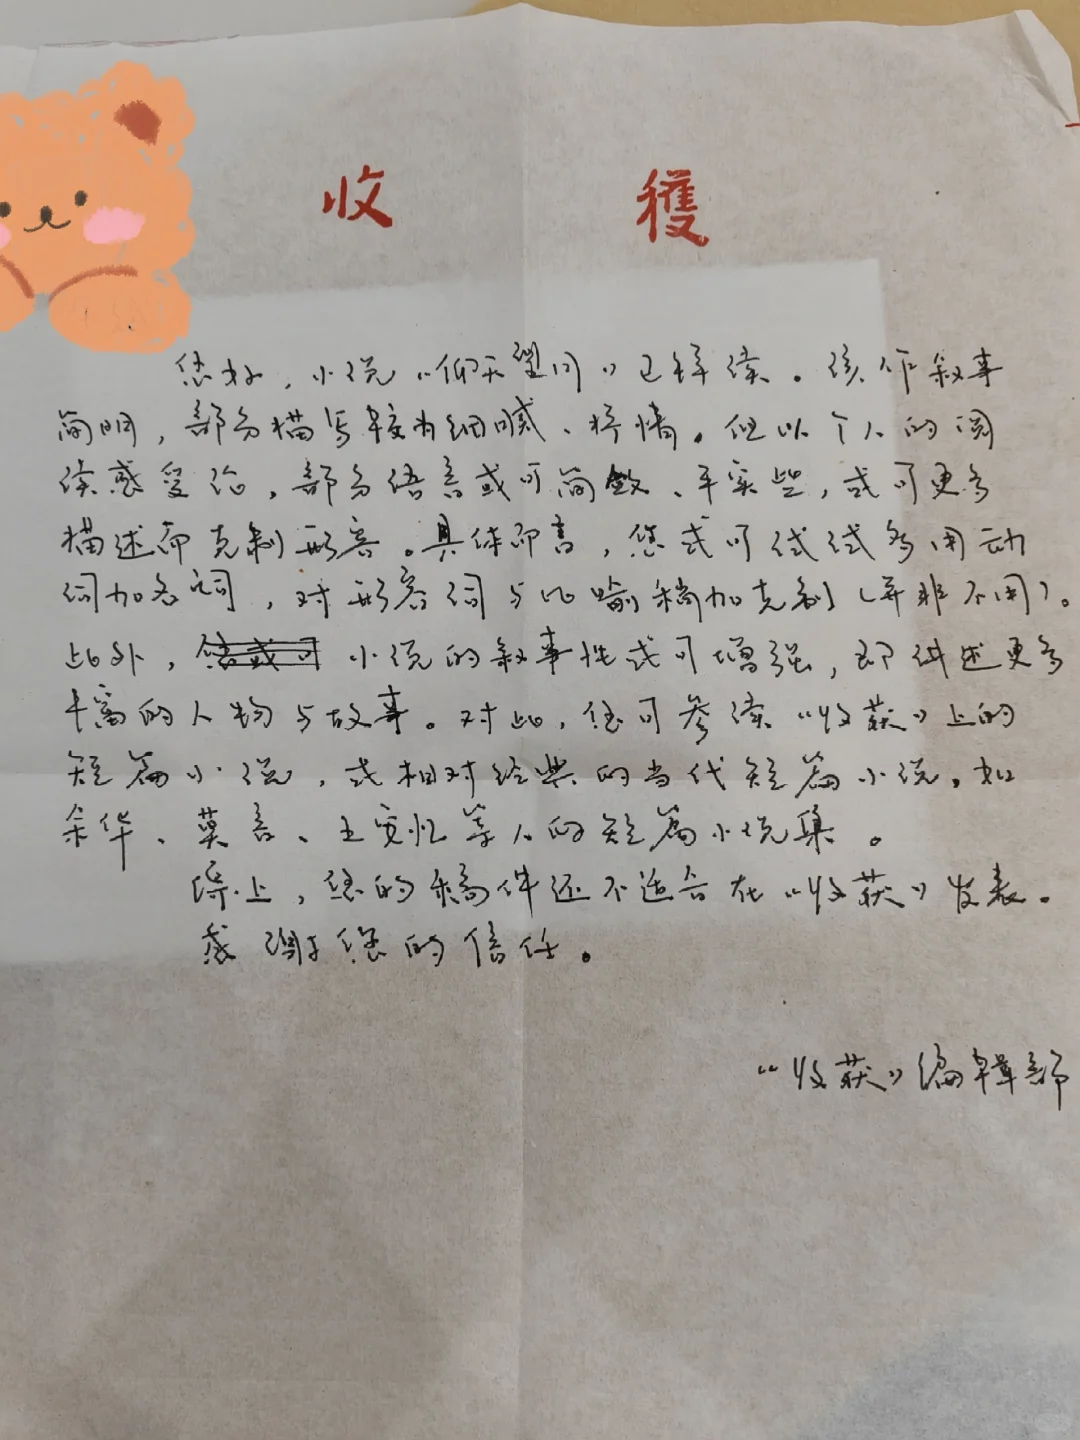 收 穫
您好，小说《仰天望月》已拜读。该作叙事
简明，部分描写较为细腻、抒情。但以个人的阅
读感受论，部分语言或可简致、平实些，或可更多
描述而克制形容。具体而言，您或可试试多用动
词加名词，对形容词与比喻稍加克制（并非不用）。
此外，小说的叙事性或可增强，即讲述更多
丰富的人物与故事。对此，您可参读《收获》上的
短篇小说，或相对经典的当代短篇小说，如
余华、莫言、王安忆等人的短篇小说集。
综上，您的稿件还不适合在《收获》发表。
感谢您的信任。
《收获》编辑部